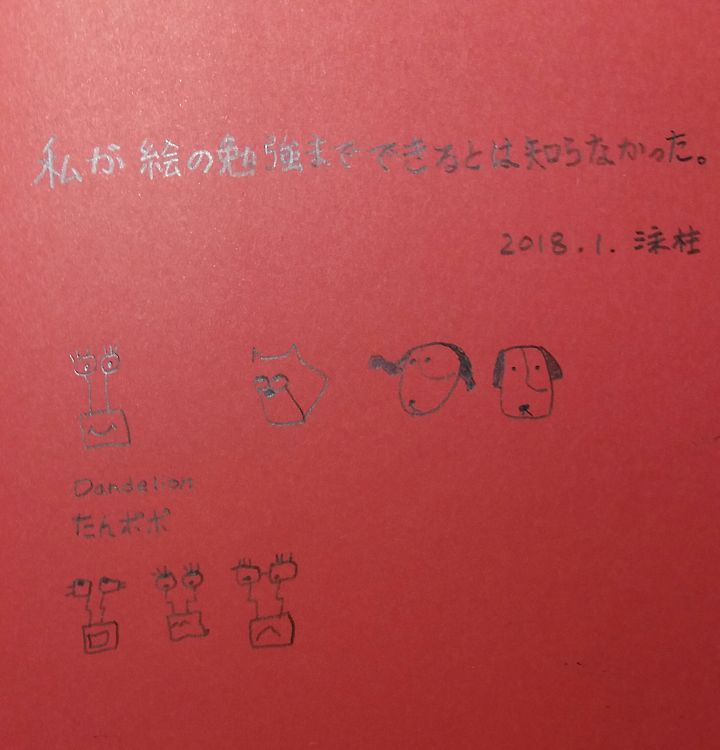 私が絵の勉強までできるとは知らなかった。
2018.1.
Dandelion
たんポポ